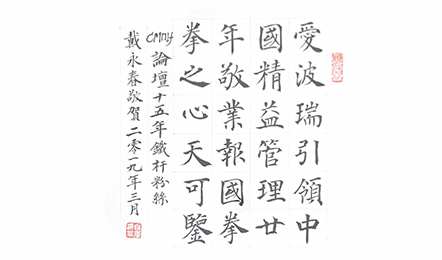 愛波瑞引領中
國精益管理廿
年敬業報國拳
拳之心天可鑒
CMNH論壇十五年鐵杆粉絲
戴永春敬賀二零一九年三月